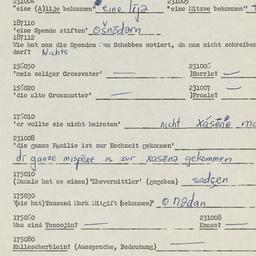 231004 231005
"eine (A)lije bekommen" eine lija "eine Mitave bekommen"
187110
'eine Spende stiften' ošnōdərn
187112
Wie hat man die Spenden am Schabbes notiert, da man nicht schreiben
darf? Nichts
156050 231006
'mein seliger Grossvater' — )Harrle( —
156020 231007
'die alte Grossmutter' — )Fraale( —
175010
'er wollte sie nicht heiraten' nicht xasēnə
231008
'die ganze Familie ist zur Hochzeit gekommen'
di gantse mišpōxe is zur xasēnə gekommen
175010
(Damals hat es einen)'Ehevermittler' (gegeben) sadšen
175030
(sie hat)Tausend Mark Mitgift (bekommen) 0 nadan
175060 231008
Was sind Tenoojim? — Knass? —
175080
Kallescherblein? (Aussprache, Bedeutung) —